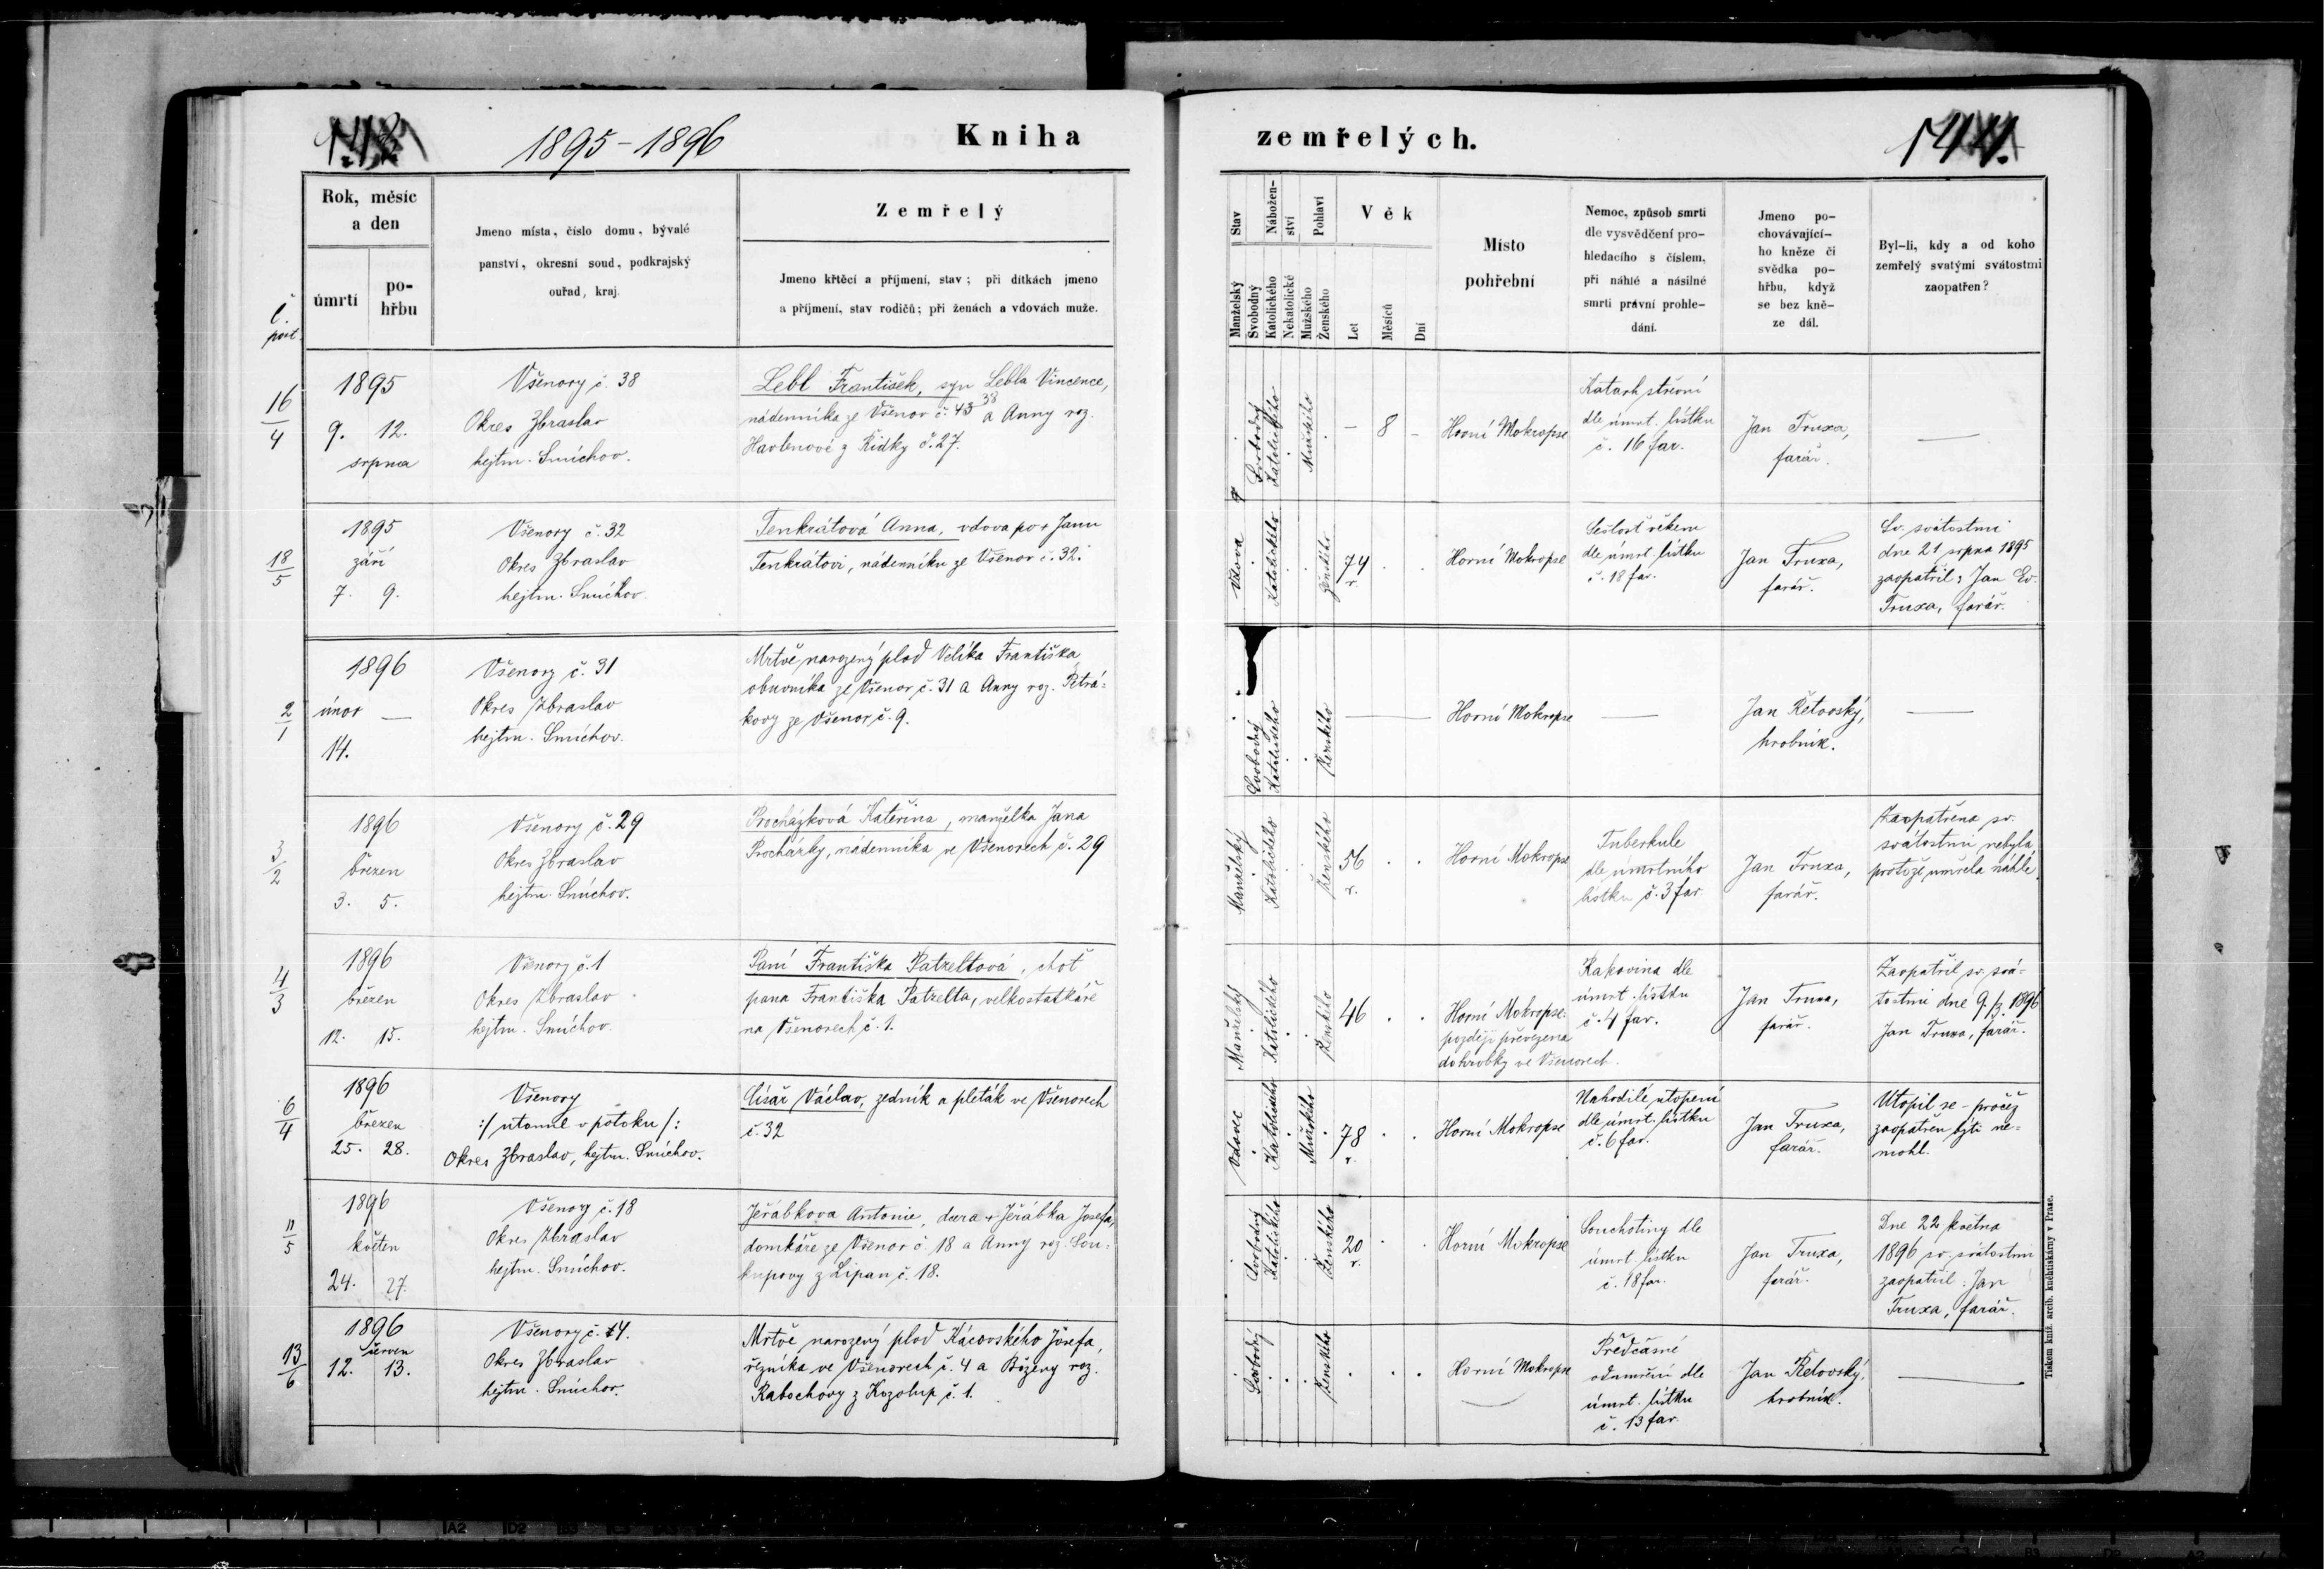 1895-1896
Kniha
zemřelých.
144.
Rok, měsíc
a den
úmrtí
po-
hřbu
Jmeno místa, číslo domu, bývalé
panství, okresní soud, podkrajský
ouřad, kraj.
Zemřelý
Jmeno křtěcí a příjmení, stav; při dítkách jmeno
a příjmení, stav rodičů; při ženách a vdovách muže.
Stav
Manželský
Svobodný
Nábožen-
ství
Katolického
Nekatolické
Pohlaví
Mužského
Ženského
Věk
Let
Měsíců
Dní
Místo
pohřební
Nemoc, způsob smrti
dle vysvědčení pro-
hledacího s číslem,
při náhlé a násilné
smrti právní prohle-
dání.
Jmeno po-
chovávající-
ho kněze či
svědka po-
hřbu, když
se bez kně-
ze dál.
Byl-li, kdy a od koho
zemřelý svatými svátostmi
zaopatřen?
16
4
1895
9. 12.
srpna
Všenory č. 38
Okres Zbraslav
hejtm. Smíchov.
Lebl František, syn Lebla Vincence,
nádenníka ze Všenor č. 43 38 a Anny roz.
Havlenové z Řidky č. 27.
Svobodný
Katolického
Mužského
— 8 —
Horní Mokropse
Katarh střevní
dle úmrt. lístku
č. 16 far.
Jan Truxa,
farář.
—
18
5
1895
září
7. 9.
Všenory č. 32
Okres Zbraslav
hejtm. Smíchov.
Tenkrátová Anna, vdova po + Janu
Tenkrátovi, nádenníku ze Všenor č. 32.
Vdova
Katolického
ženského
74
r.
Horní Mokropse
Sešlost věkem
dle úmrt. lístku
č. 18 far.
Jan Truxa,
farář.
Sv. svátostmi
dne 21 srpna 1895
zaopatřil: Jan Ev.
Truxa, farář.
2
1
1896
únor —
14.
Všenory č. 31
Okres Zbraslav
hejtm. Smíchov.
Mrtvě narozený plod Velíka Františka
obuvníka ze Všenor č. 31 a Anny roz. Petrá-
kovy ze Všenor č. 9.
Svobodný
Katolického
Ženského
—
Horní Mokropse
—
Jan Řetovský,
hrobník.
—
3
2
1896
březen
3. 5.
Všenory č. 29
Okres Zbraslav
hejtm. Smíchov.
Procházková Kateřina, manželka Jana
Procházky, nádenníka ve Všenorech č. 29
Manželský
Katolického
Ženského
56
r.
Horní Mokropse
Tuberkule
dle úmrtního
lístku č. 3 far.
Jan Truxa,
farář.
Zaopatřena sv.
svátostmi nebyla,
protože umřela náhle.
4
3
1896
březen
12. 15.
Všenory č. 1
Okres Zbraslav
hejtm. Smíchov.
Paní Františka Patzeltová, choť
pana Františka Patzelta, velkostatkáře
na Všenorech č. 1.
Manželský
Katolického
Ženského
46
Horní Mokropse:
později převezena
do hrobky ve Všenorech.
Rakovina dle
úmrt. lístku
č. 4 far.
Jan Truxa,
farář.
Zaopatřil sv. svá-
tostmi dne 9./3. 1896
Jan Truxa, farář.
6
4
1896
březen
25. 28.
Všenory
:/ utonul v potoku /:
Okres Zbraslav, hejtm. Smíchov.
Císař Václav, zedník a pleták ve Všenorech
č. 32
Vdovec
Katolického
Mužského
78
r.
Horní Mokropse
Nahodilé utopení
dle úmrt. lístku
č. 6 far.
Jan Truxa,
farář.
Utopil se – pročež
zaopatřen býti ne-
mohl.
11
5
1896
květen
24. 27.
Všenory č. 18
Okres Zbraslav
hejtm. Smíchov.
Jeřábkova Antonie, dcera + Jeřábka Josefa,
domkáře ze Všenor č. 18 a Anny roz. Sou-
kupovy z Lipan č. 18.
Svobodný
Katolického
Ženského
20
r.
Horní Mokropse
Souchotiny dle
úmrt. lístku
č. 18 far.
Jan Truxa,
farář.
Dne 22 května
1896 sv. svátostmi
zaopatřil: Jan
Truxa, farář.
13
6
1896
červen
12. 13.
Všenory č. 14.
Okres Zbraslav
hejtm. Smíchov.
Mrtvě narozený plod Kácovského Josefa,
řezníka ve Všenorech č. 4 a Boženy roz.
Rabochovy z Kozolup č. 1.
Svobodný
Ženského
Horní Mokropse
Předčasné
odumření dle
úmrt. lístku
č. 13 far.
Jan Řetovský,
hrobník.
—
Tiskem kníž. arcib. knihtiskárny v Praze.